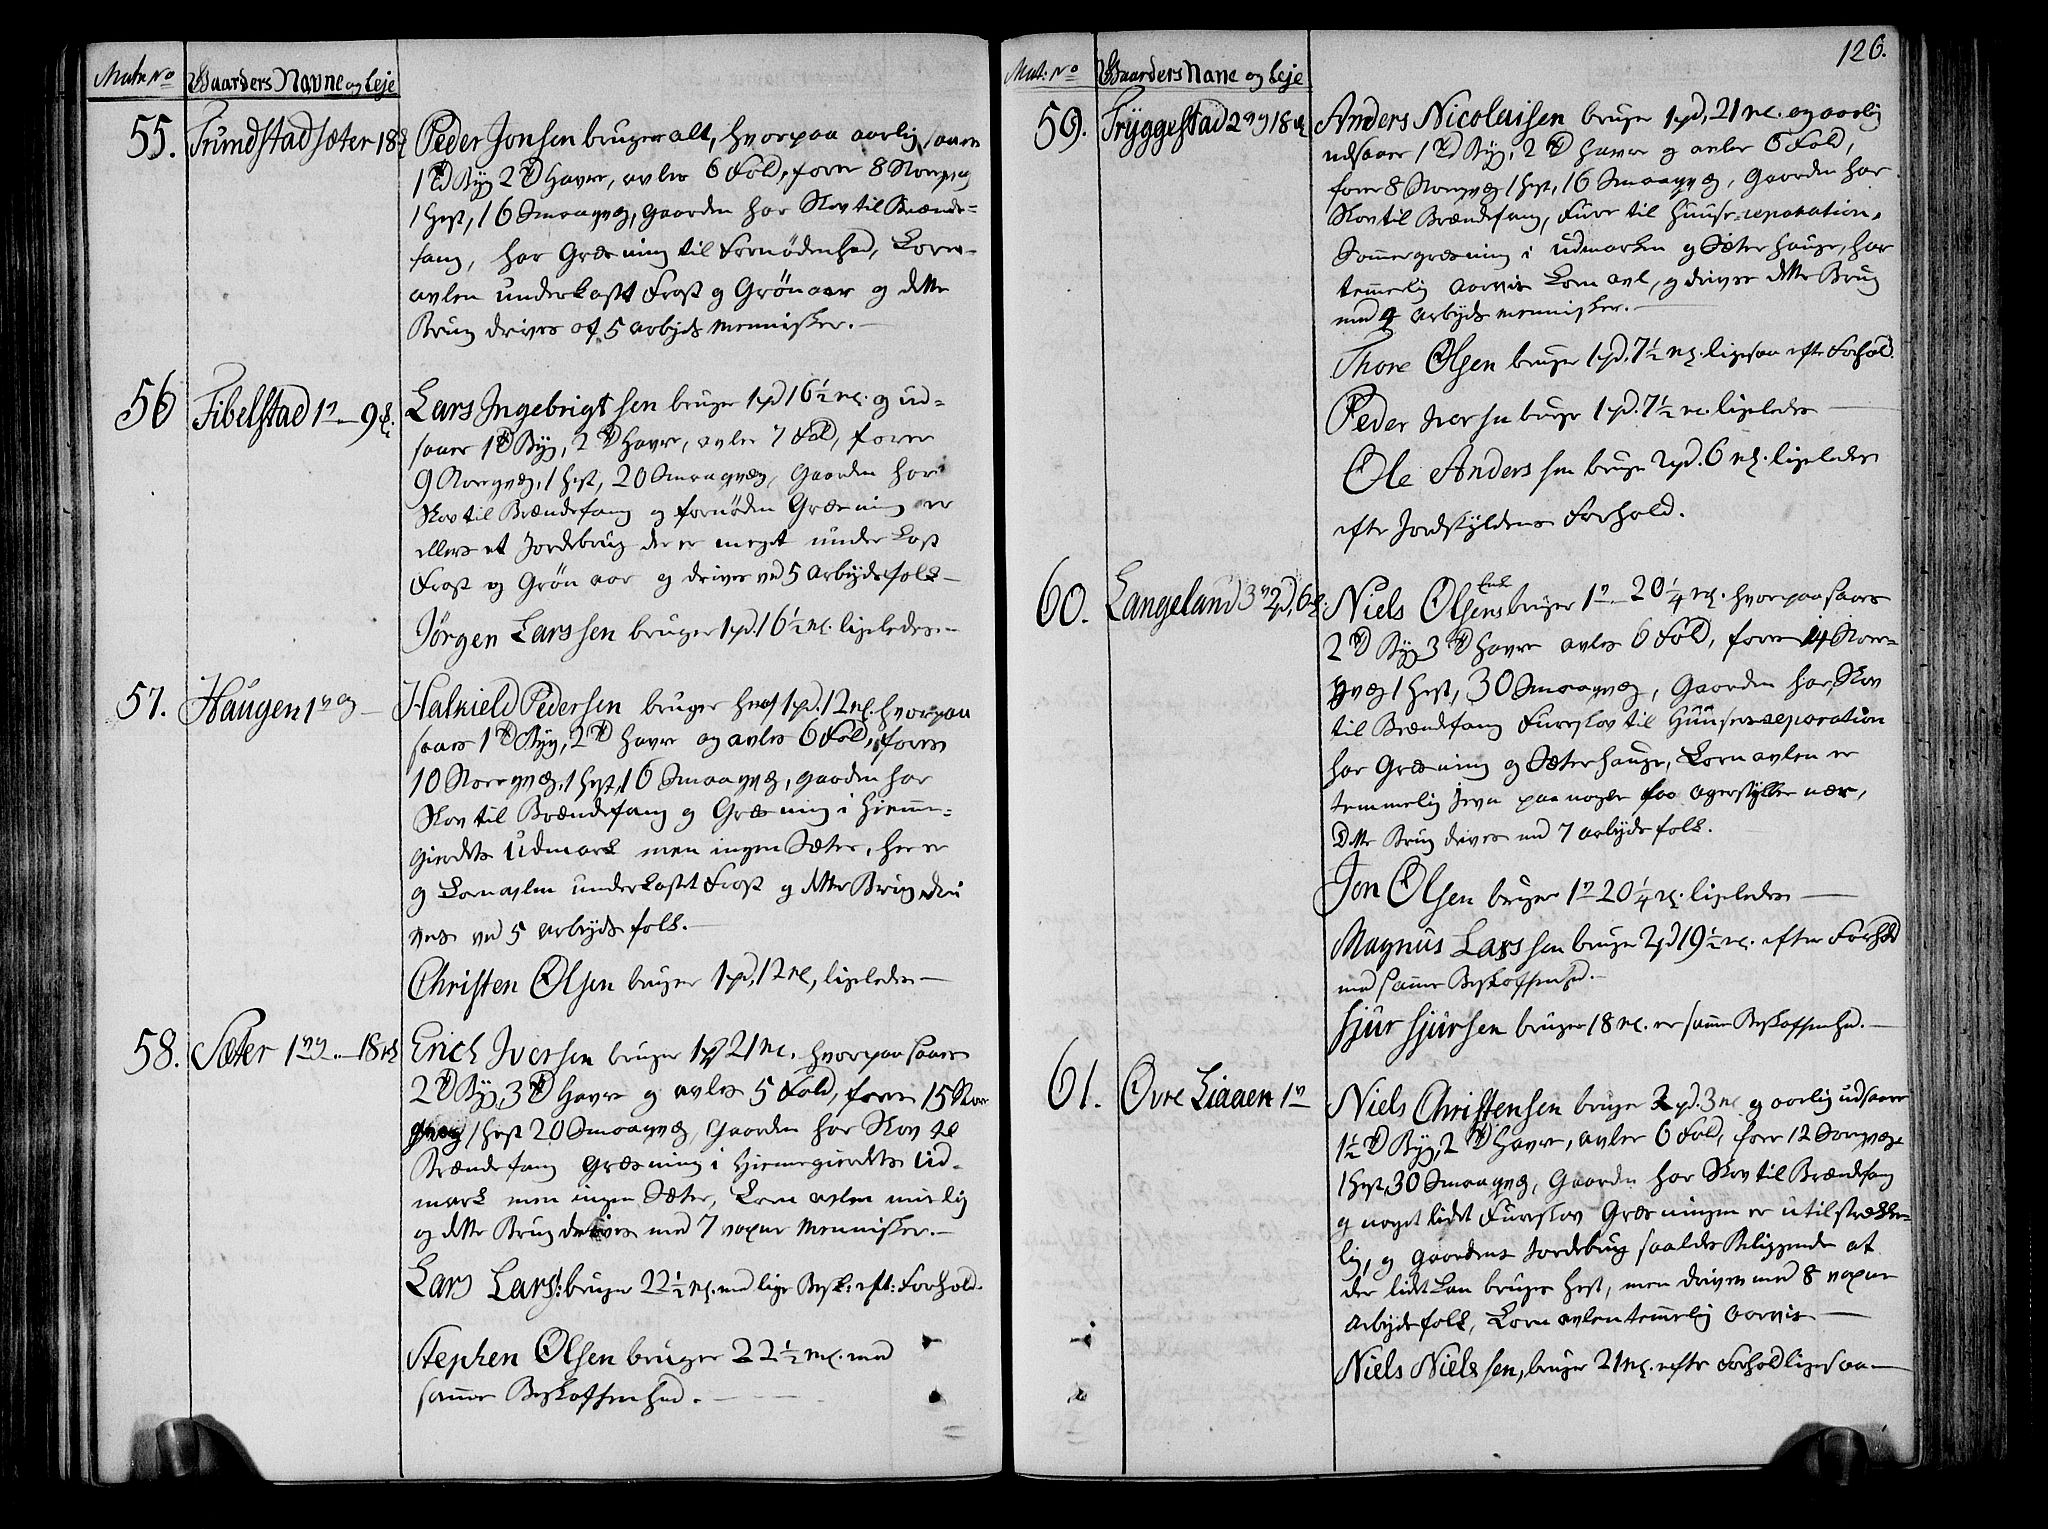 Matr: No Gaarders Navne og Leje
55. Trundstad sæter 18 Peder Jonsen bruger alt, hvorpaa aarlig saaes
1 Td Byg 2 Td Havre, avles 6 Fold, foer 8 Storqvæg
1 Hest, 16 Smaaqvæg, gaarden har Skov til Brænde-
fang, har Græsning til Fornødenhed, Korn-
avlen underkast Frost og Grönaar og dette
Brug drives af 5 arbejds Mennisker.
56 Fibelstad 1 - 9 Lars Ingebrigtsen bruger 1 pd 16 1/2 mk. og ud-
saaer 1 Td Byg, 2 Td Havre, avler 7 Fold, foer
9 Storqvæg, 1 Hest, 20 Smaaqvæg, Gaarden har
Skov til Brændefang og fornøden Græsning er
ellers et Jordebrug der er meget underkast
Frost og Grön aar og drives ved 5 Arbejdsfolk -
Jörgen Larssen bruger 1 pd. 16 1/2 mk. ligeledes. -
57. Haugen 1 Halkield Pedersen bruger heraf 1 pd. 12 mk. hvorpaa
saaes 1 Td Byg, 2 Td Havre og avles 6 Fold, foer
10 Storqvæg, 1 Hest, 16 Smaaqvæg, gaarden har
Skov til Brændefang og Græsning i Hiemme-
gierdets Udmark men ingen Sæter, her er
og Kornavlen underkastet Frost og dette Brug dri
ves ved 5 arbejds folk. -
Christen Olsen bruger 1 pd, 12 mk, ligeledes -
58. Sæter 1 - 18 Erich Iversen bruger 1 pd 21 mk. hvorpaa saaes
2 Td Byg, 3 Td Havre og avles 5 Fold, foer 15 Stor
qvæg 1 Hest 20 Smaaqvæg, Gaarden har Skov til
Brændefang Græsning i Hiemegierdets Ud-
mark men ingen Sæter, Korn avlen
og dette Brug drives med 7 voxne Mennisker. -
Lars Lars: bruger 22 1/2 mk. med lige Besk: eft: Forhold.
Stephen Olsen bruger 22 1/2 mk. med
samme Beskaffenhed. -
126.
Mat: No Gaarders Navne og Leje
59. Tryggestad 2 18 Anders Nicolaisen bruger 1 pd, 21 mk. og aarlig
udsaaer 1 Td Byg, 2 Td Havre og avler 6 Fold,
foer 8 Storqvæg 1 Hest, 16 Smaaqvæg, Gaarden har
Skov til Brændefang, Furr til Huuse-reparation,
Sommergræsning i udmarken og Sæterhauge, har
temmelig aarvis Korn avl, og drives dette Brug
med 4 arbejds mennisker. -
Thore Olsen bruger 1 pd. 7 1/2 mk. ligesaa efter Forhold.
Peder Iversen bruger 1 pd. 7 1/2 mk. ligeledes -
Ole Anderssen bruger 2 pd. 6 mk. ligeledes
efter Jordskyldens Forhold.
60. Langeland 3 2 pd, 6 Niels Olsens Enke bruger 1 - 20 1/4 mk. hvorpaa saaes
2 Td Byg 3 Td Havre avles 6 Fold, foer 14 Stor-
qvæg 1 Hest, 30 Smaaqvæg, Gaarden har Skov
til Brændefang Fureskov til Huuses reparation
har Græsning og Sæterhauge, Kornavlen er
temmelig jevn paa nogle faa agerstykker nær,
Dette Brug drives med 7 arbejdsfolk.
Jon Olsen bruger 1 20 1/4 mk. ligeledes -
Magnus Larssen bruger 2 pd 19 1/2 mk. efter Forhold
med samme Beskaffenhed. -
Sjur Sjursen bruger 18 mk. er samme Beskaffenhed. -
61. Övre Liaaen 1 Niels Christensen bruger 2 pd. 3 mk og aarlig udsaaer
1 1/2 Td Byg, 2 Td Havre, avler 6 Fold, foer 12 Storqvæg
1 Hest, 30 Smaaqvæg, Gaarden har Skov til Brændefang
og noget lidet Fureskov Græsningen er utilstrække-
lig, og Gaardens Jordebrug saaledes Beliggende at
der lidet kan bruges Hest, men drives med 8 voxne
Arbejdsfolk, Kornavlen temmelig aarvis -
Niels Nielssen, bruger 21 mk. efter Forhold ligesaa -